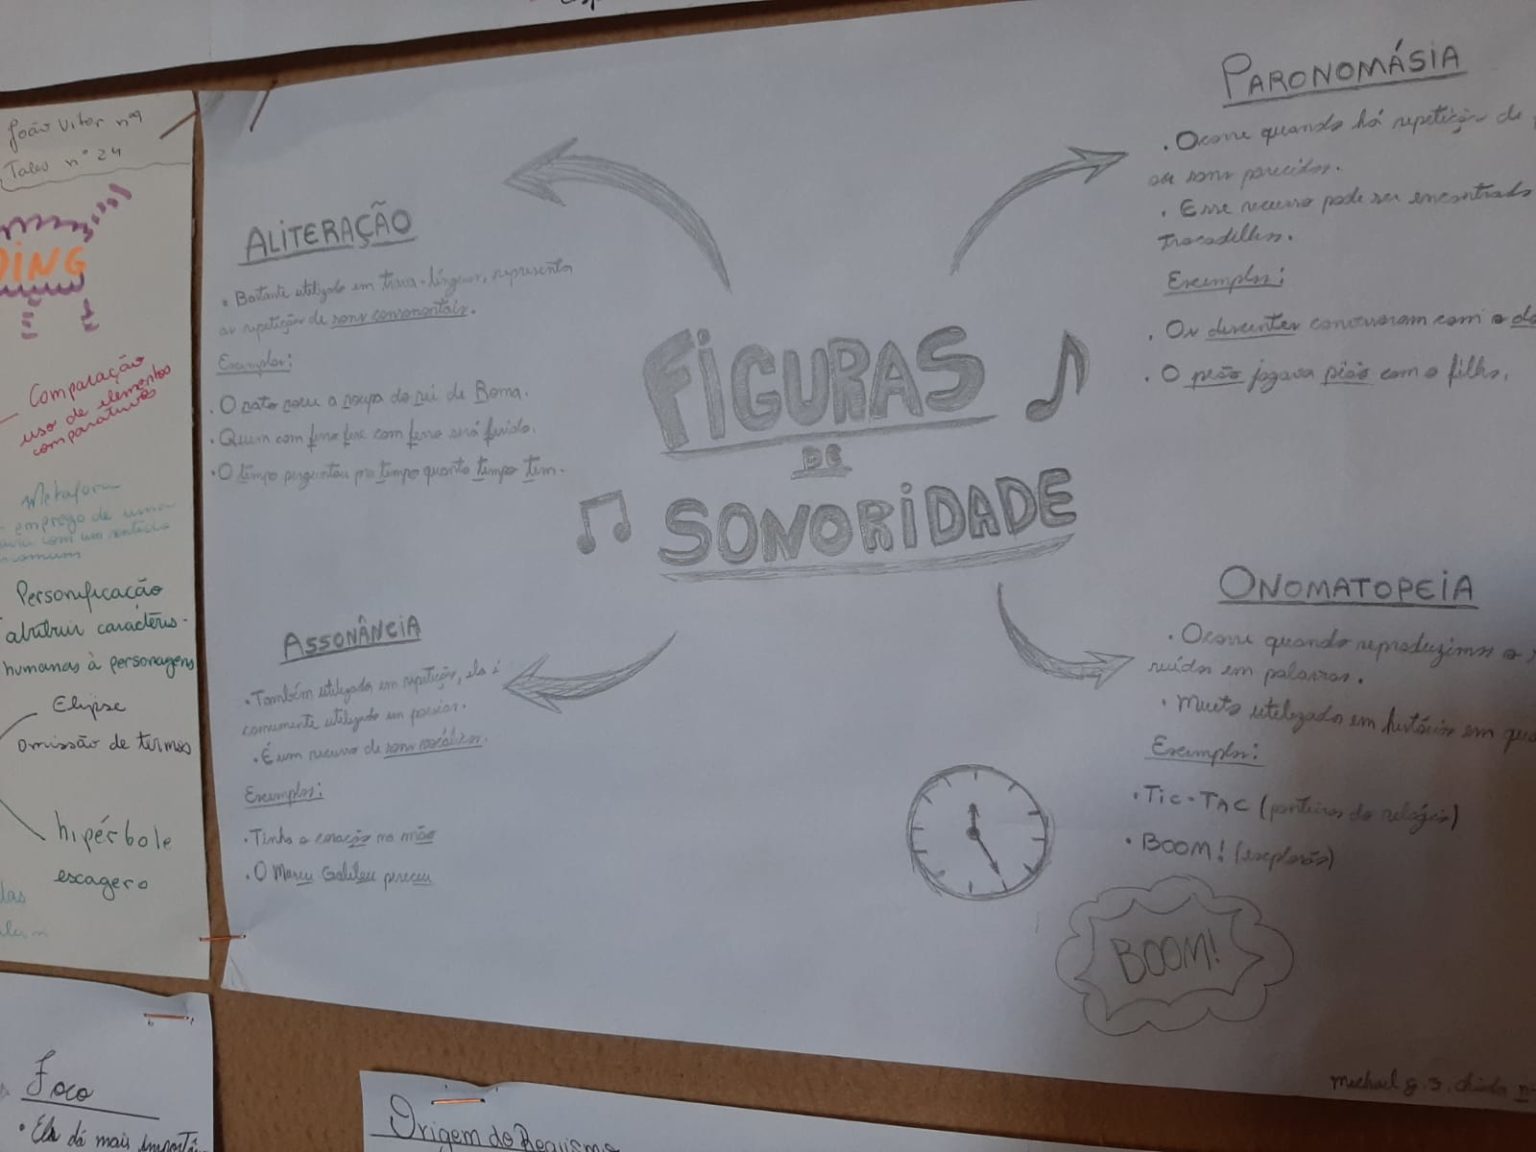 João Vitor nº9
Tales nº 24
DING
Comparação
uso de elementos
comparativos
Metáfora
emprego de uma
com um sentido
incomum
Personificação
atribuir caracterís-
humanas à personagens
Elipse
omissão de termos
hipérbole
escagero
FIGURAS
DE
SONORIDADE
ALITERAÇÃO
• Bastante utilizado em trava-línguas, representa
as repetição de sons consonantais.
Exemplos:
• O rato roeu a roupa do rei de Roma.
• Quem com ferro fere com ferro será ferido.
• O tempo perguntou pro tempo quanto tempo tem.
ASSONÂNCIA
• Também utilizada em repetição, ela é
comumente utilizado em poesias.
• É um recurso de sons vocálicos.
Exemplos:
• Tinha o coração na mão
• O Mateu Galileu pereceu
PARONOMÁSIA
• Ocorre quando há repetição de
ou sons parecidos.
• Esse recurso pode ser encontrado
trocadilhos.
Exemplos:
• Os discentes conversaram com o do
• O peão jogava pião com o filho.
ONOMATOPEIA
• Ocorre quando reproduzimos o
ruídos em palavras.
• Muito utilizado em histórias em qua
Exemplos:
• TIC-TAC (ponteiros do relógio)
• BOOM! (explosão)
BOOM!
Foco
• Ela dá mais importân
Origem do Realismo